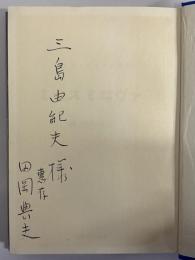 三島由紀夫様
恵存
田岡典夫